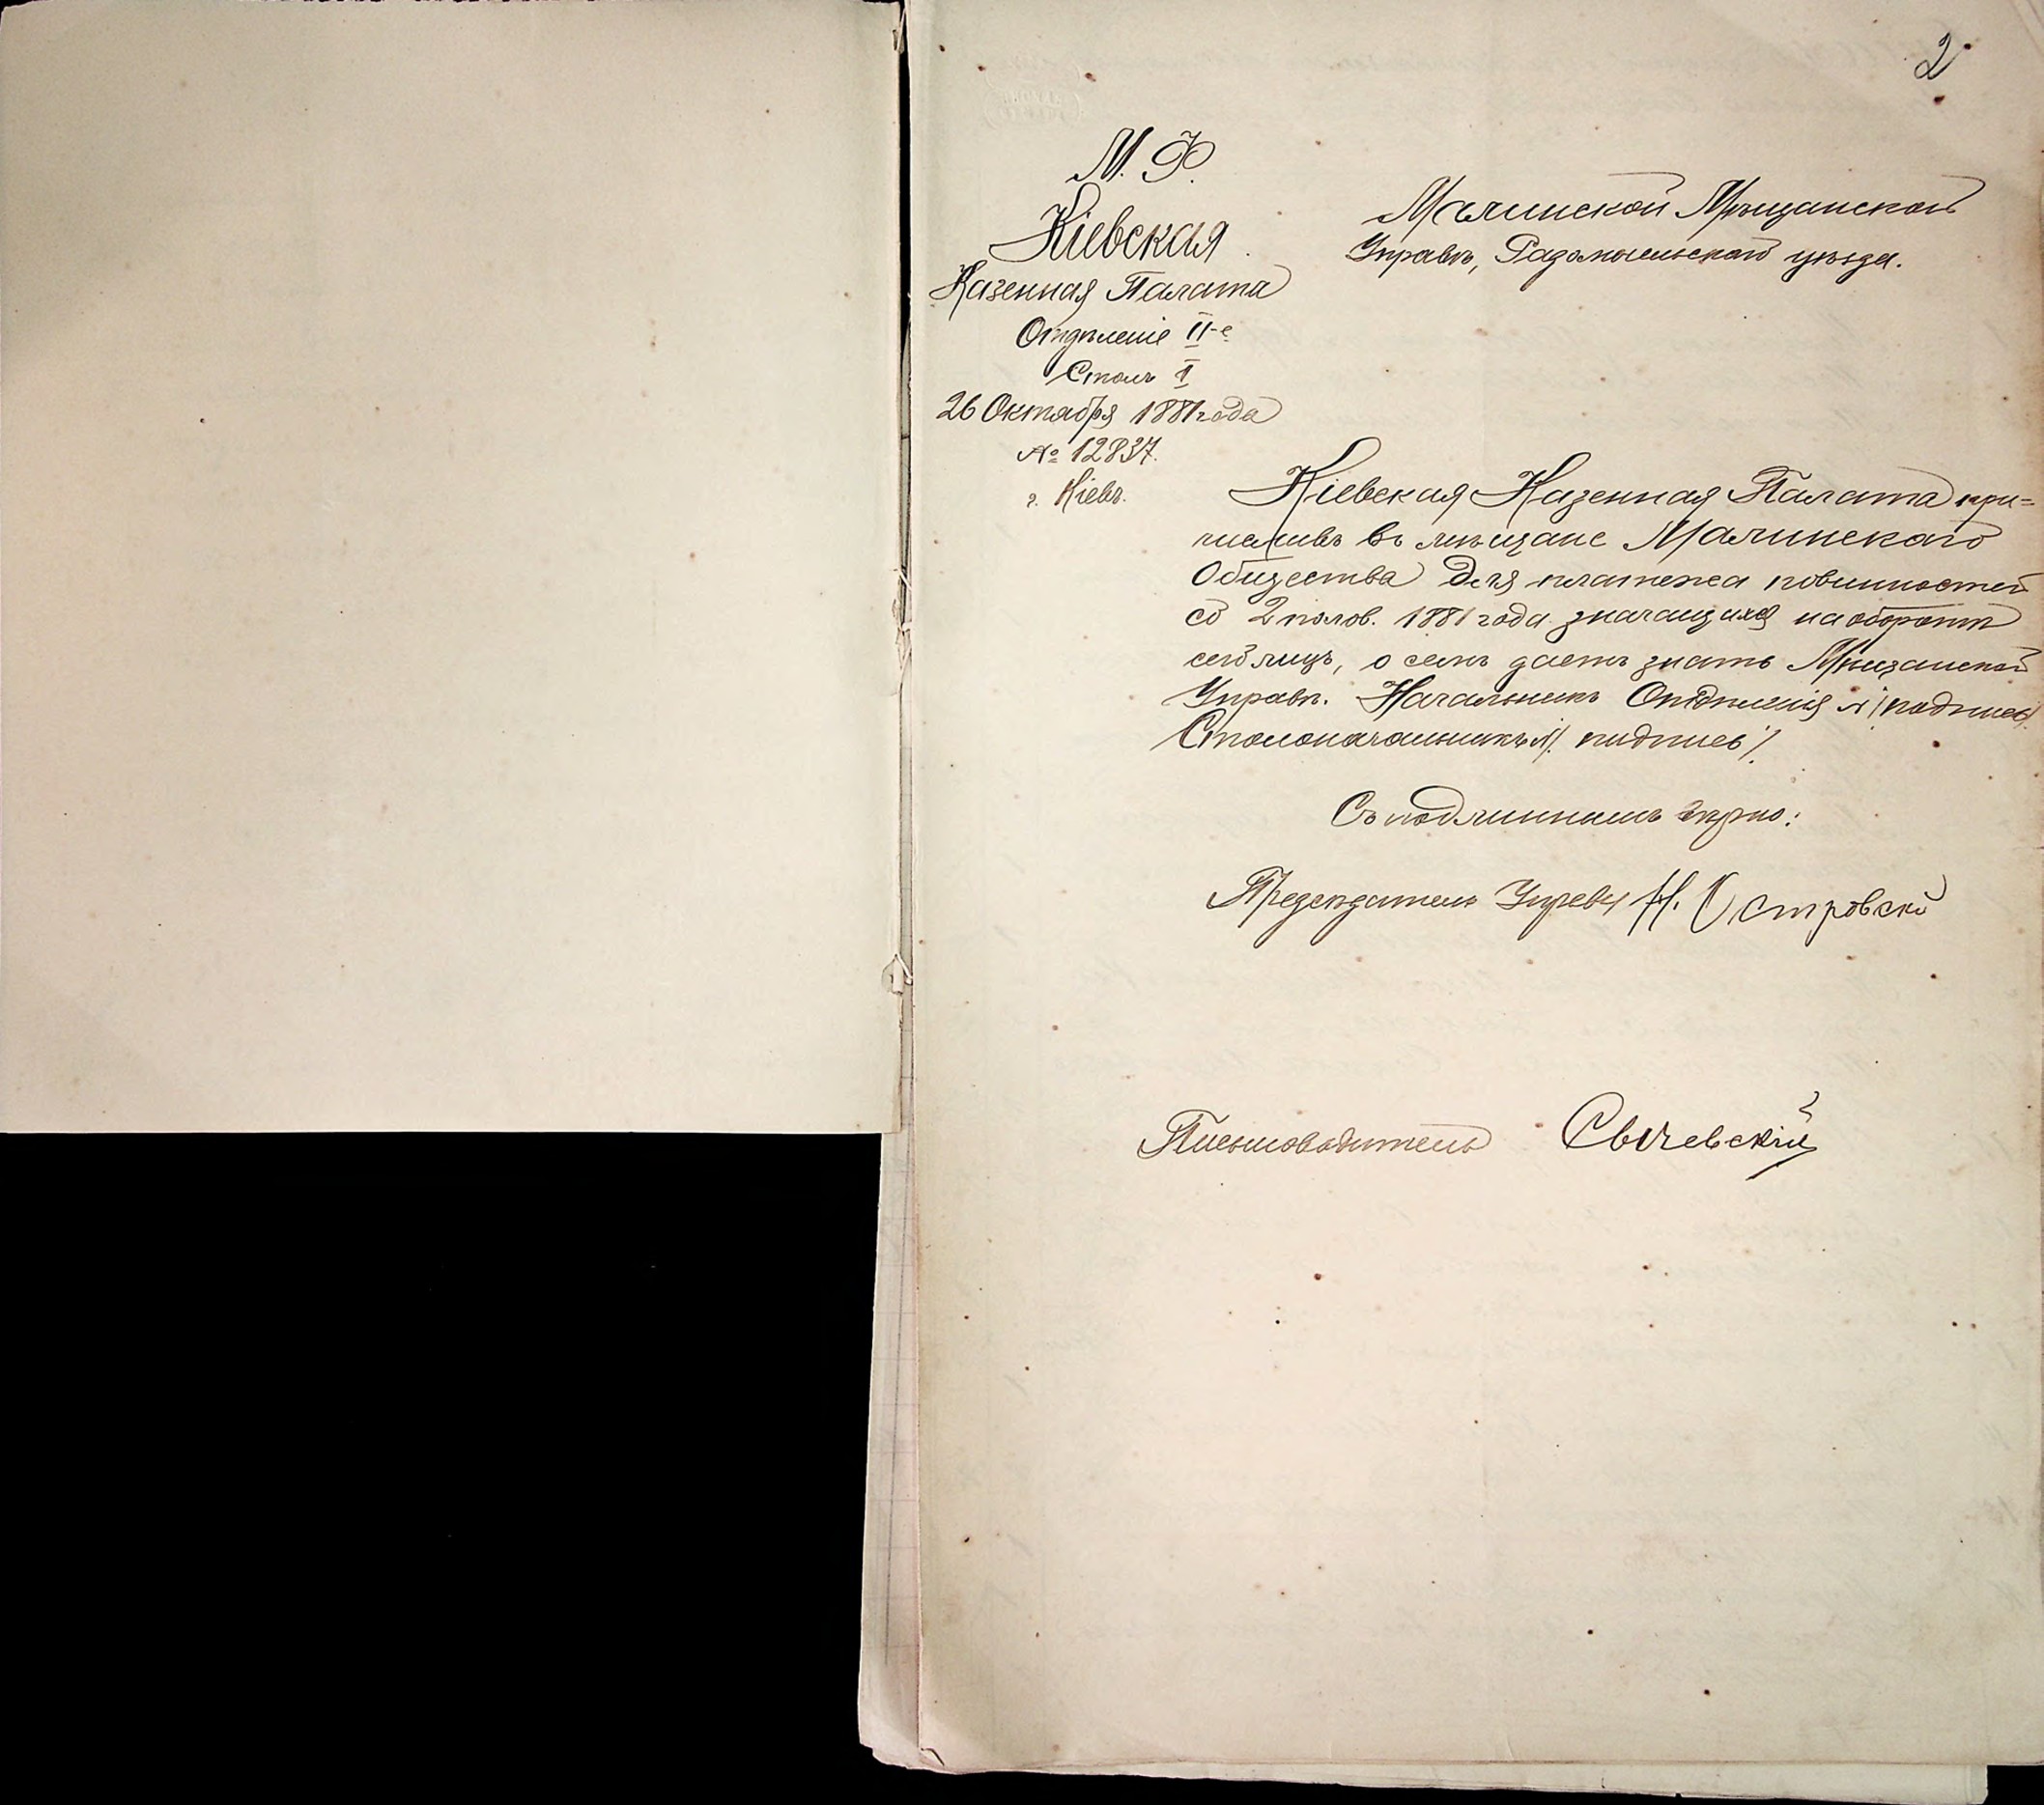 2
М. Ф.
Кіевская
Казенная Палата
Отдѣленіе II-е
Столъ I
26 Октября 1881 года
№ 12837.
г. Кіевъ.
Малинской Мѣщанской
Управѣ, Радомысльскаго уѣзда.
Кіевская Казенная Палата при=
числивъ въ мѣщане Малинскаго
Общества для платежа повинностей
со 2 полов. 1881 года значащихся на оборотѣ
сего лицъ, о семъ даетъ знать Мѣщанской
Управѣ. Начальникъ Отдѣленія /подпись/
Столоначальникъ /подпись/.
Съ подлиннымъ вѣрно:
Предсѣдатель Управы Н. Островскі
Письмоводитель Свичевскій